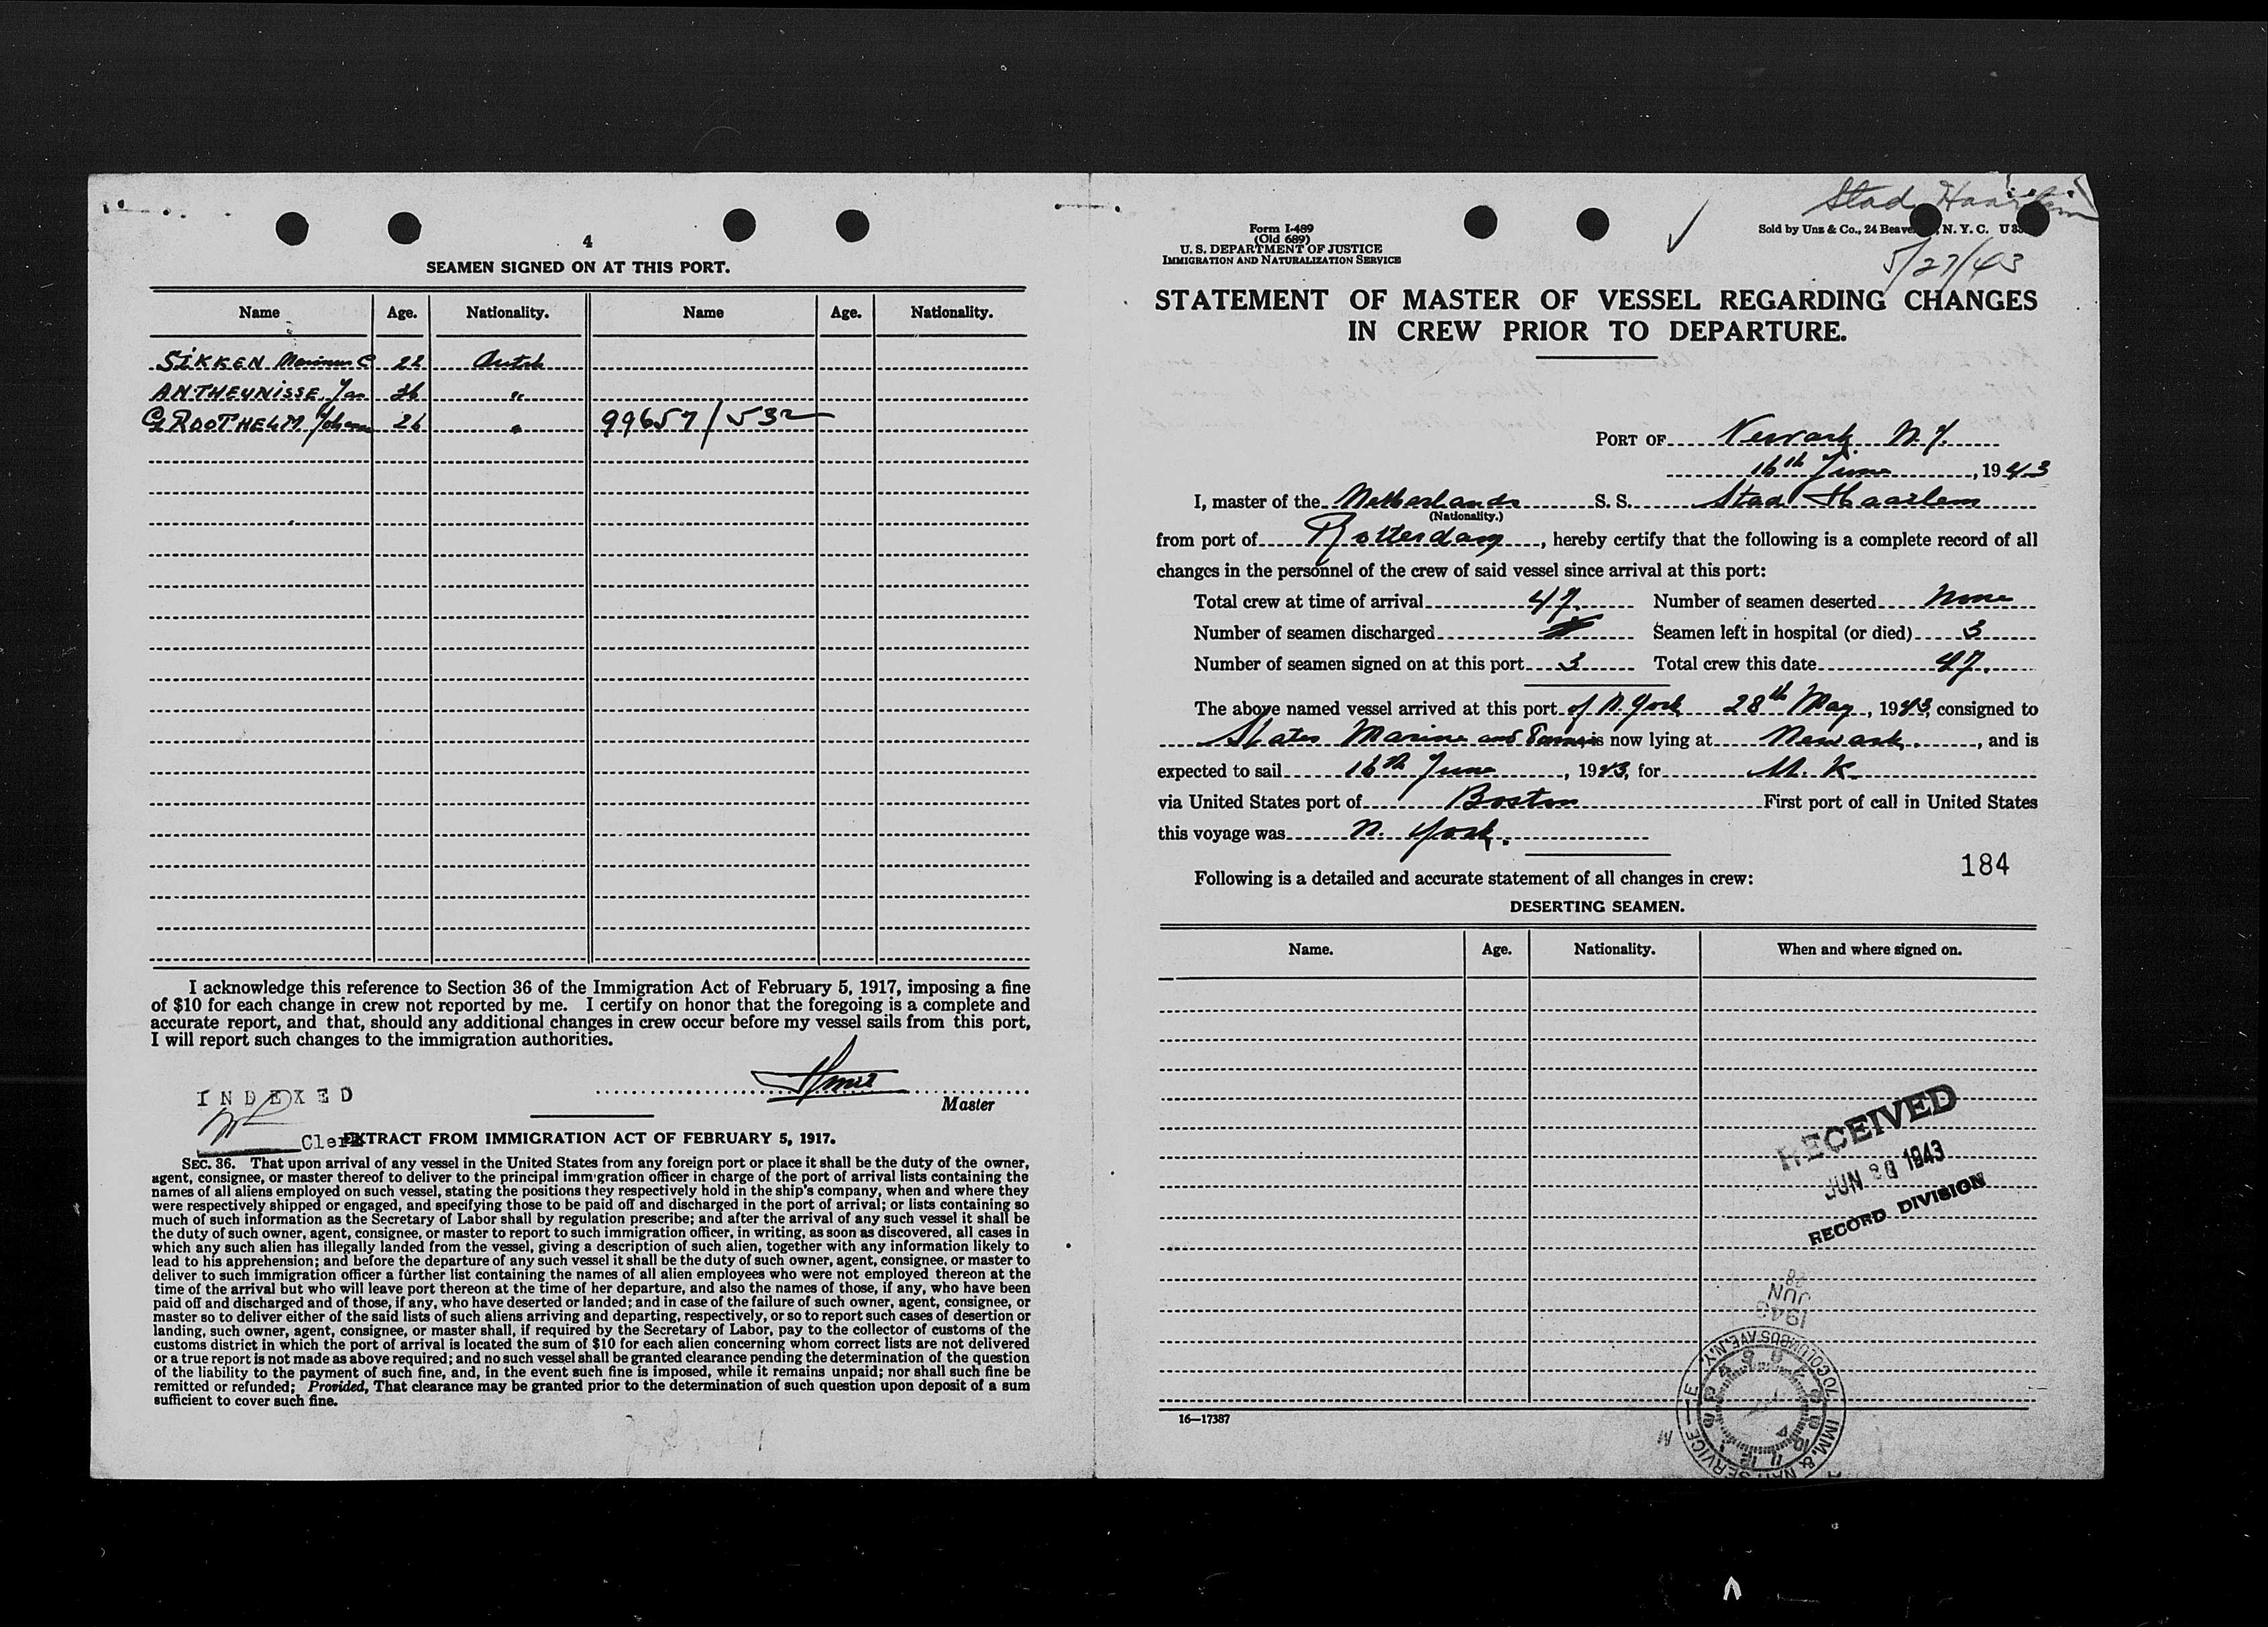 4
SEAMEN SIGNED ON AT THIS PORT.
Name Age. Nationality. Name Age. Nationality.
SIKKEN Marinus C 22 Dutch
ANTHEUNISSE Jan 36 "
GROOTHELM Johann 26 " 99657/532
I acknowledge this reference to Section 36 of the Immigration Act of February 5, 1917, imposing a fine
of $10 for each change in crew not reported by me. I certify on honor that the foregoing is a complete and
accurate report, and that, should any additional changes in crew occur before my vessel sails from this port,
I will report such changes to the immigration authorities.
INDEXED
Master
Clerk
EXTRACT FROM IMMIGRATION ACT OF FEBRUARY 5, 1917.
SEC. 36. That upon arrival of any vessel in the United States from any foreign port or place it shall be the duty of the owner,
agent, consignee, or master thereof to deliver to the principal immigration officer in charge of the port of arrival lists containing the
names of all aliens employed on such vessel, stating the positions they respectively hold in the ship's company, when and where they
were respectively shipped or engaged, and specifying those to be paid off and discharged in the port of arrival; or lists containing so
much of such information as the Secretary of Labor shall by regulation prescribe; and after the arrival of any such vessel it shall be
the duty of such owner, agent, consignee, or master to report to such immigration officer, in writing, as soon as discovered, all cases in
which any such alien has illegally landed from the vessel, giving a description of such alien, together with any information likely to
lead to his apprehension; and before the departure of any such vessel it shall be the duty of such owner, agent, consignee, or master to
deliver to such immigration officer a further list containing the names of all alien employees who were not employed thereon at the
time of the arrival but who will leave port thereon at the time of her departure, and also the names of those, if any, who have been
paid off and discharged and of those, if any, who have deserted or landed; and in case of the failure of such owner, agent, consignee, or
master so to deliver either of the said lists of such aliens arriving and departing, respectively, or so to report such cases of desertion or
landing, such owner, agent, consignee, or master shall, if required by the Secretary of Labor, pay to the collector of customs of the
customs district in which the port of arrival is located the sum of $10 for each alien concerning whom correct lists are not delivered
or a true report is not made as above required; and no such vessel shall be granted clearance pending the determination of the question
of the liability to the payment of such fine, and, in the event such fine is imposed, while it remains unpaid; nor shall such fine be
remitted or refunded; Provided, That clearance may be granted prior to the determination of such question upon deposit of a sum
sufficient to cover such fine.
Stad Haarlem
Form I-489
(Old 689)
U. S. DEPARTMENT OF JUSTICE
IMMIGRATION AND NATURALIZATION SERVICE
Sold by Unz & Co., 24 Beaver N. Y. C.
5/27/43
STATEMENT OF MASTER OF VESSEL REGARDING CHANGES
IN CREW PRIOR TO DEPARTURE.
PORT OF Newark N.J.
16th June, 1943
I, master of the Netherlands S. S. Stad Haarlem
(Nationality.)
from port of Rotterdam, hereby certify that the following is a complete record of all
changes in the personnel of the crew of said vessel since arrival at this port:
Total crew at time of arrival 47. Number of seamen deserted None
Number of seamen discharged Seamen left in hospital (or died) 3
Number of seamen signed on at this port 3 Total crew this date 47.
The above named vessel arrived at this port of N. York 28th May, 1943, consigned to
States Marine and is now lying at Newark., and is
expected to sail 16th June, 1943, for U. K.
via United States port of Boston First port of call in United States
this voyage was N. York.
184
Following is a detailed and accurate statement of all changes in crew:
DESERTING SEAMEN.
Name. Age. Nationality. When and where signed on.
RECEIVED
JUN 30 1943
RECORD DIVISION
28
JUN
1943
70 COLUMBUS AVE. N.Y.
IMM. & NAT. SERVICE
16—17387